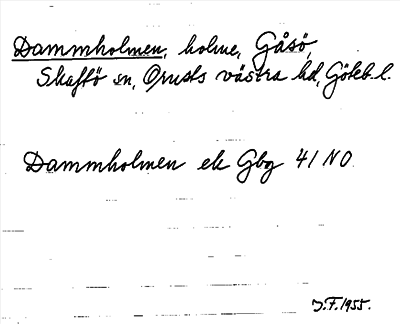 Dammholmen, holme, Gåsö,
Skaftö sn, Orusts västra hd, Göteb. l.
Dammholmen ek Gbg 41 NO.
J.F. 1955.